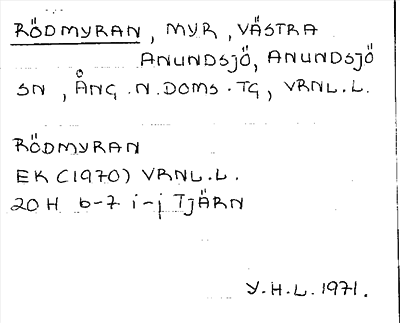 RÖDMYRAN, MYR, VÄSTRA
ANUNDSJÖ, ANUNDSJÖ
SN, ÅNG. N. DOMS. TG, VRNL.L.
RÖDMYRAN
EK (1970) VRNL.L.
20 H 6-7 i-j TJÄRN
Y.H.L. 1971.